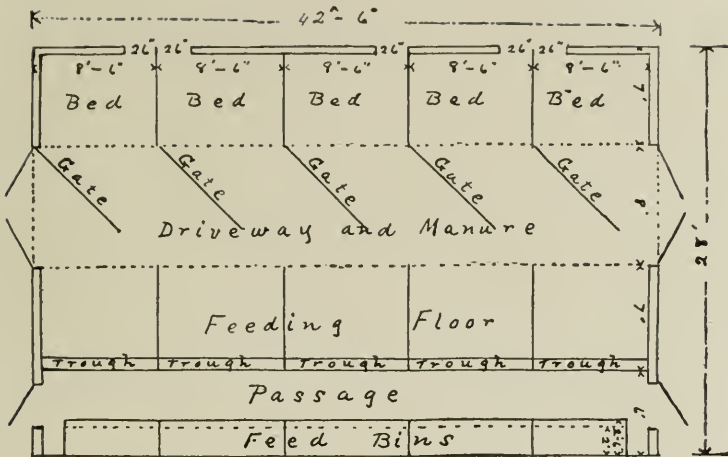 42'-6"
26" 26" 26" 26" 26"
8'-6" 8'-6" 8'-6" 8'-6" 8'-6"
Bed Bed Bed Bed Bed
7'
Gate Gate Gate Gate Gate
8'
Driveway and Manure
28'
7'
Feeding Floor
Trough Trough Trough Trough Trough
Passage
Feed Bins